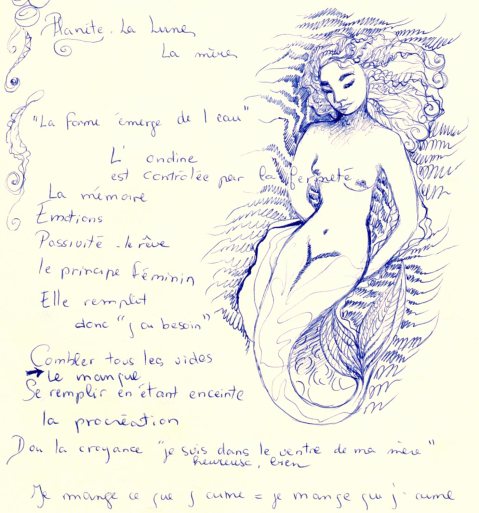 Planète. La Lune
La mère
"La forme émerge de l'eau"
L'ondine
est contrôlée par la fermeté
La mémoire
Émotions
Passivité - le rêve
le principe féminin
Elle remplit
donc "j'ai besoin"
Combler tous les vides
➔ Le manque
Se remplir en étant enceinte
la procréation
D'ou la croyance "je suis dans le ventre de ma mère"
heureuse, bien
Je mange ce que j'aime = je mange qui j'aime